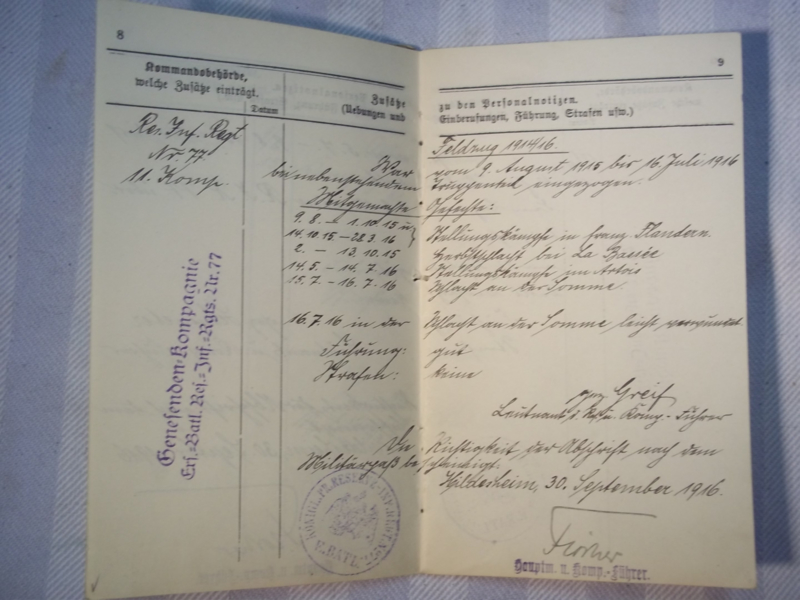 8
Kommandobehörde,
welche Zusätze einträgt.
Datum
Zusätze
(Uebungen und
Res. Inf. Regt
Nr. 77
11. Komp.
War
bei nebenstehendem
Mitgemachte
9. 8. – 1. 10. 15 u.
14. 10. 15 – 28. 3. 16
2. – 13. 10. 15
14. 5. – 14. 7. 16
15. 7. – 16. 7. 16
16. 7. 16 in der
Führung:
Strafen:
Die
Militärpaß be
Genesenden-Kompagnie
Ers.-Batl. Res.-Inf.-Rgts. Nr. 77
KÖNIGL. PR. RESERVE-INF. REGT.
BATL.
9
zu den Personalnotizen.
Einberufungen, Führung, Strafen usw.)
Feldzug 1914/16.
vom 9. August 1915 bis 16 Juli 1916
Truppenteil eingezogen.
Gefechte:
Stellungskämpfe in franz. Flandern
Herbstschlacht bei La Bassée
Stellungskämpfe im Artois
Schlacht an der Somme.
Schlacht an der Somme leicht verwundet
gut
keine
gez. Greif
Leutnant d. Res. u. Komp.-Führer
Richtigkeit der Abschrift nach dem
scheinigt.
Hildesheim, 30. September 1916.
Hauptm. u. Komp.-Führer.